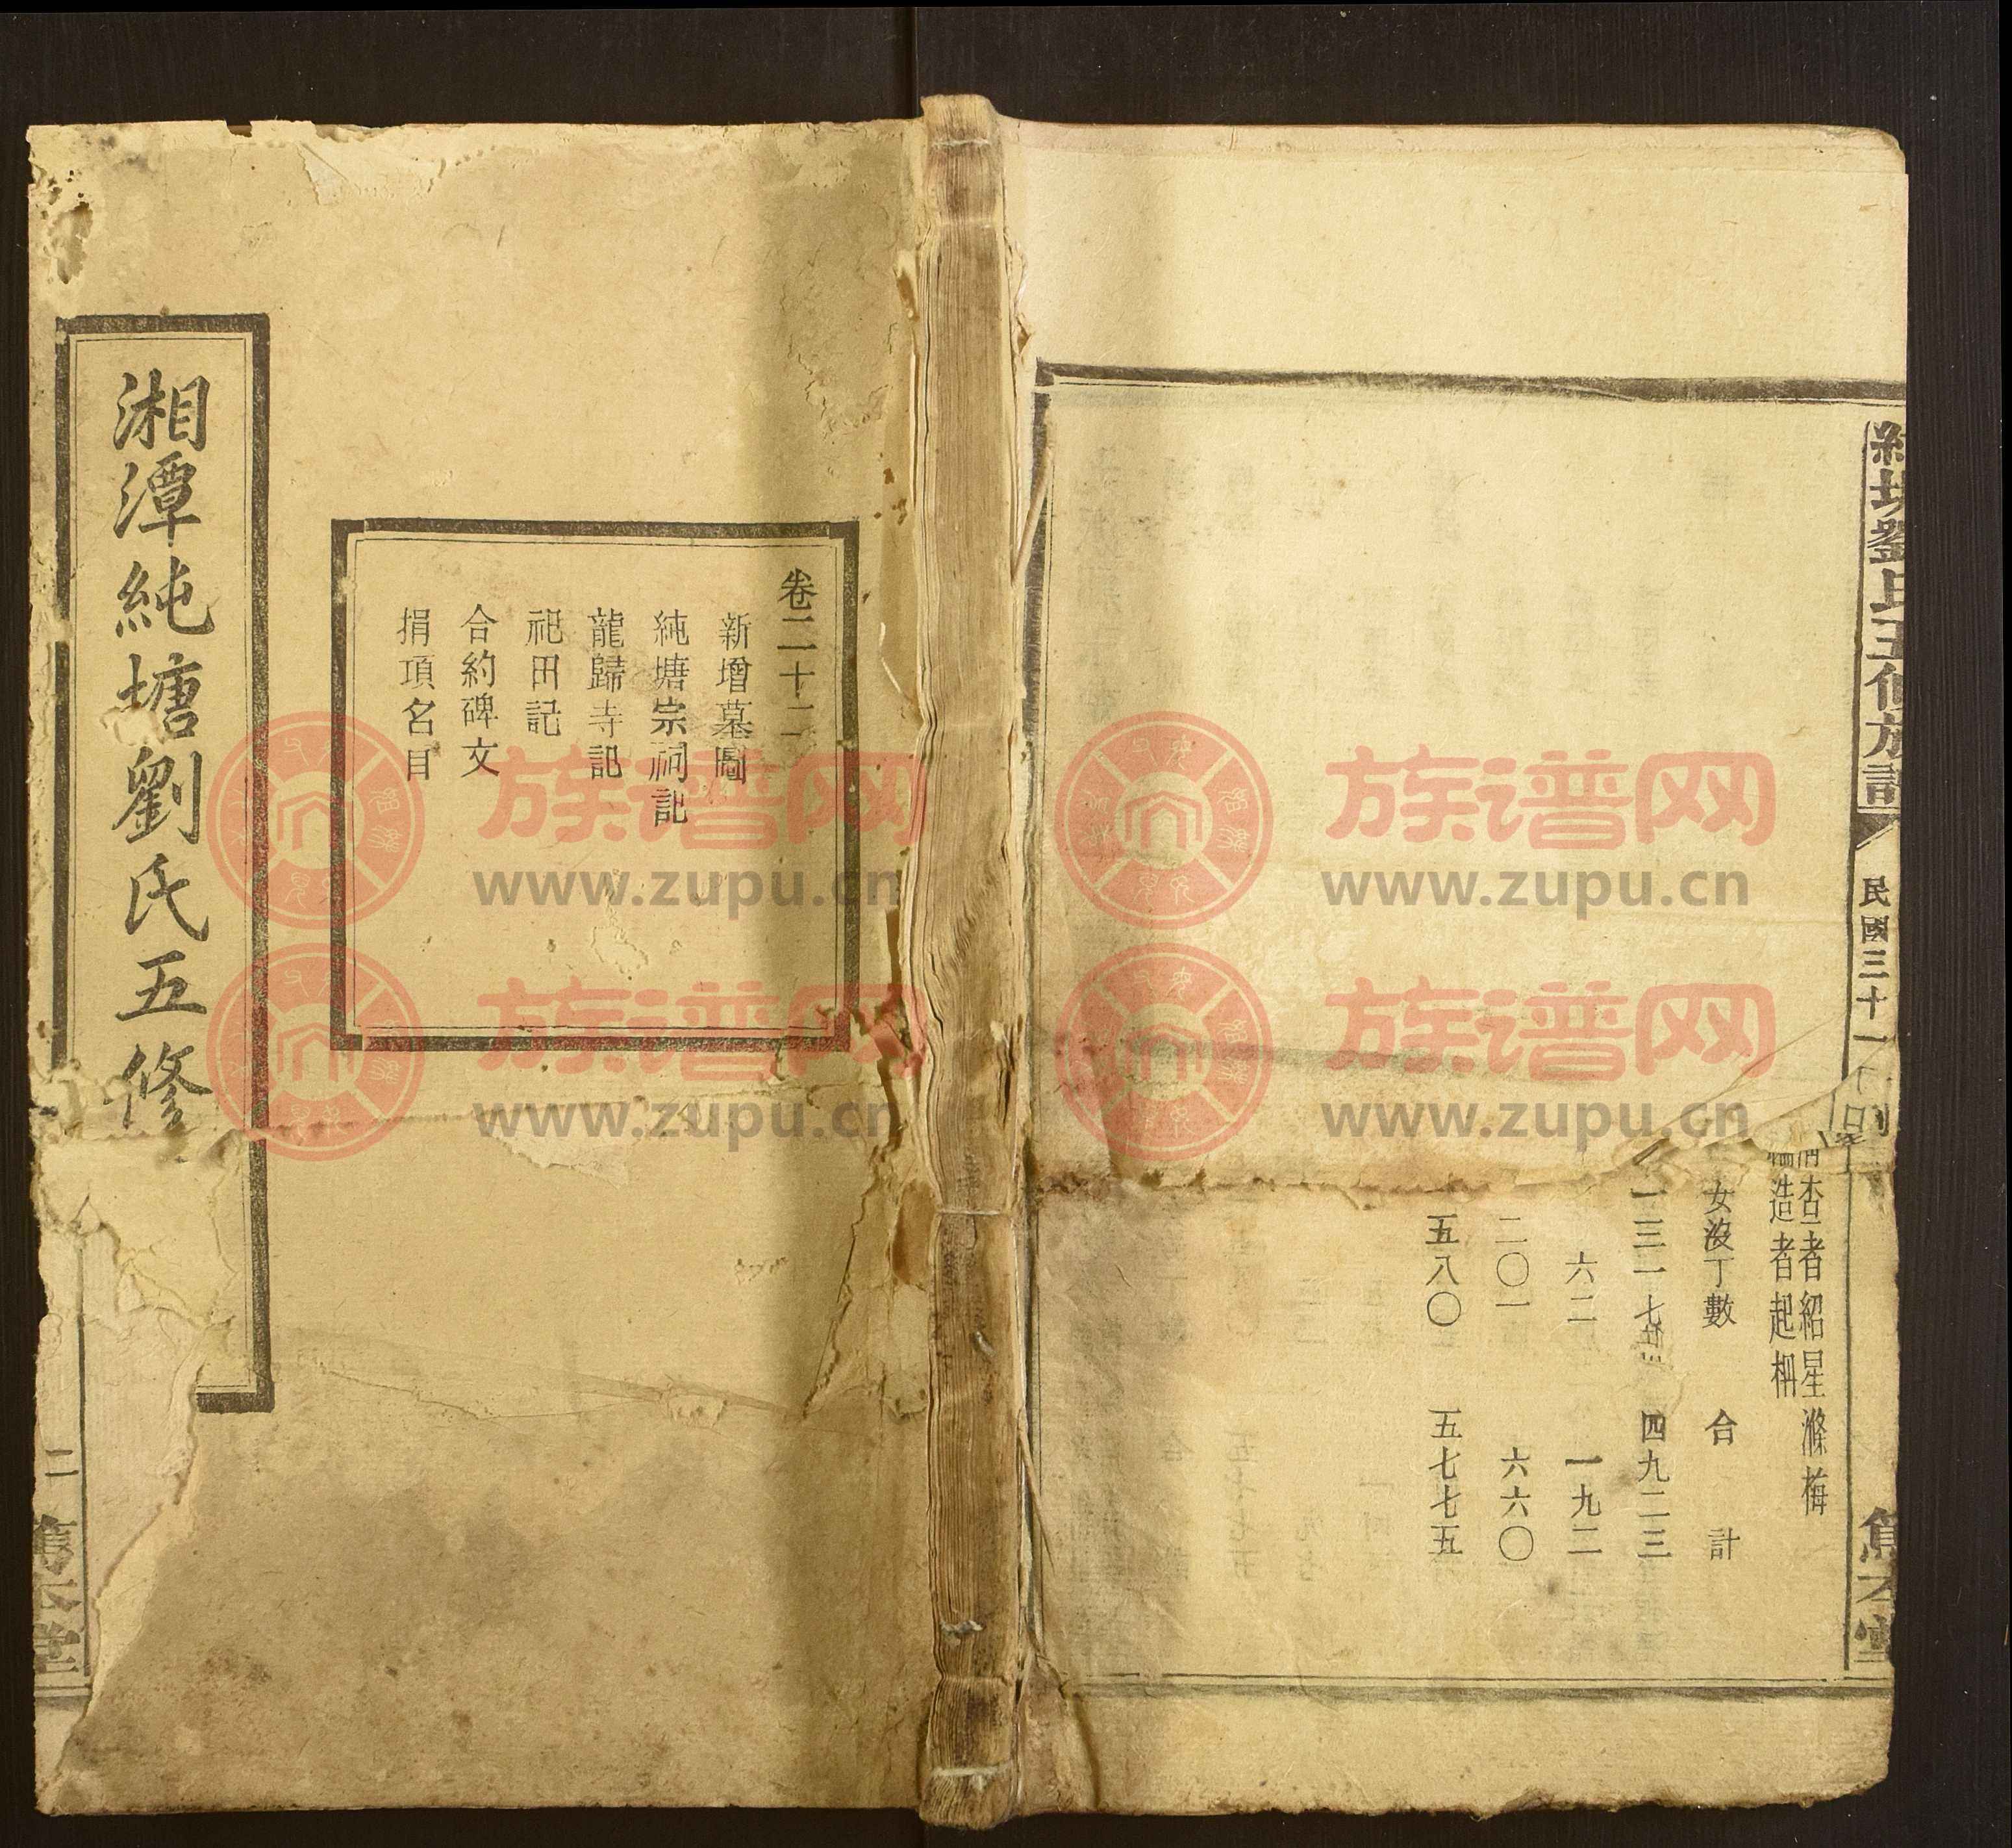 純塘劉氏五修族譜
民國三十一
查者紹星 滌梅
造者起枏
女沒丁數 合計
一三一七 四九二三
六二 一九二
二〇一 六六〇
五八〇 五七七五
卷二十二
新增墓圖
純塘宗祠記
龍歸寺記
祀田記
合約碑文
捐項名目
湘潭純塘劉氏五修
二
族谱网
www.zupu.cn
族谱网
www.zupu.cn
族谱网
www.zupu.cn
族谱网
www.zupu.cn